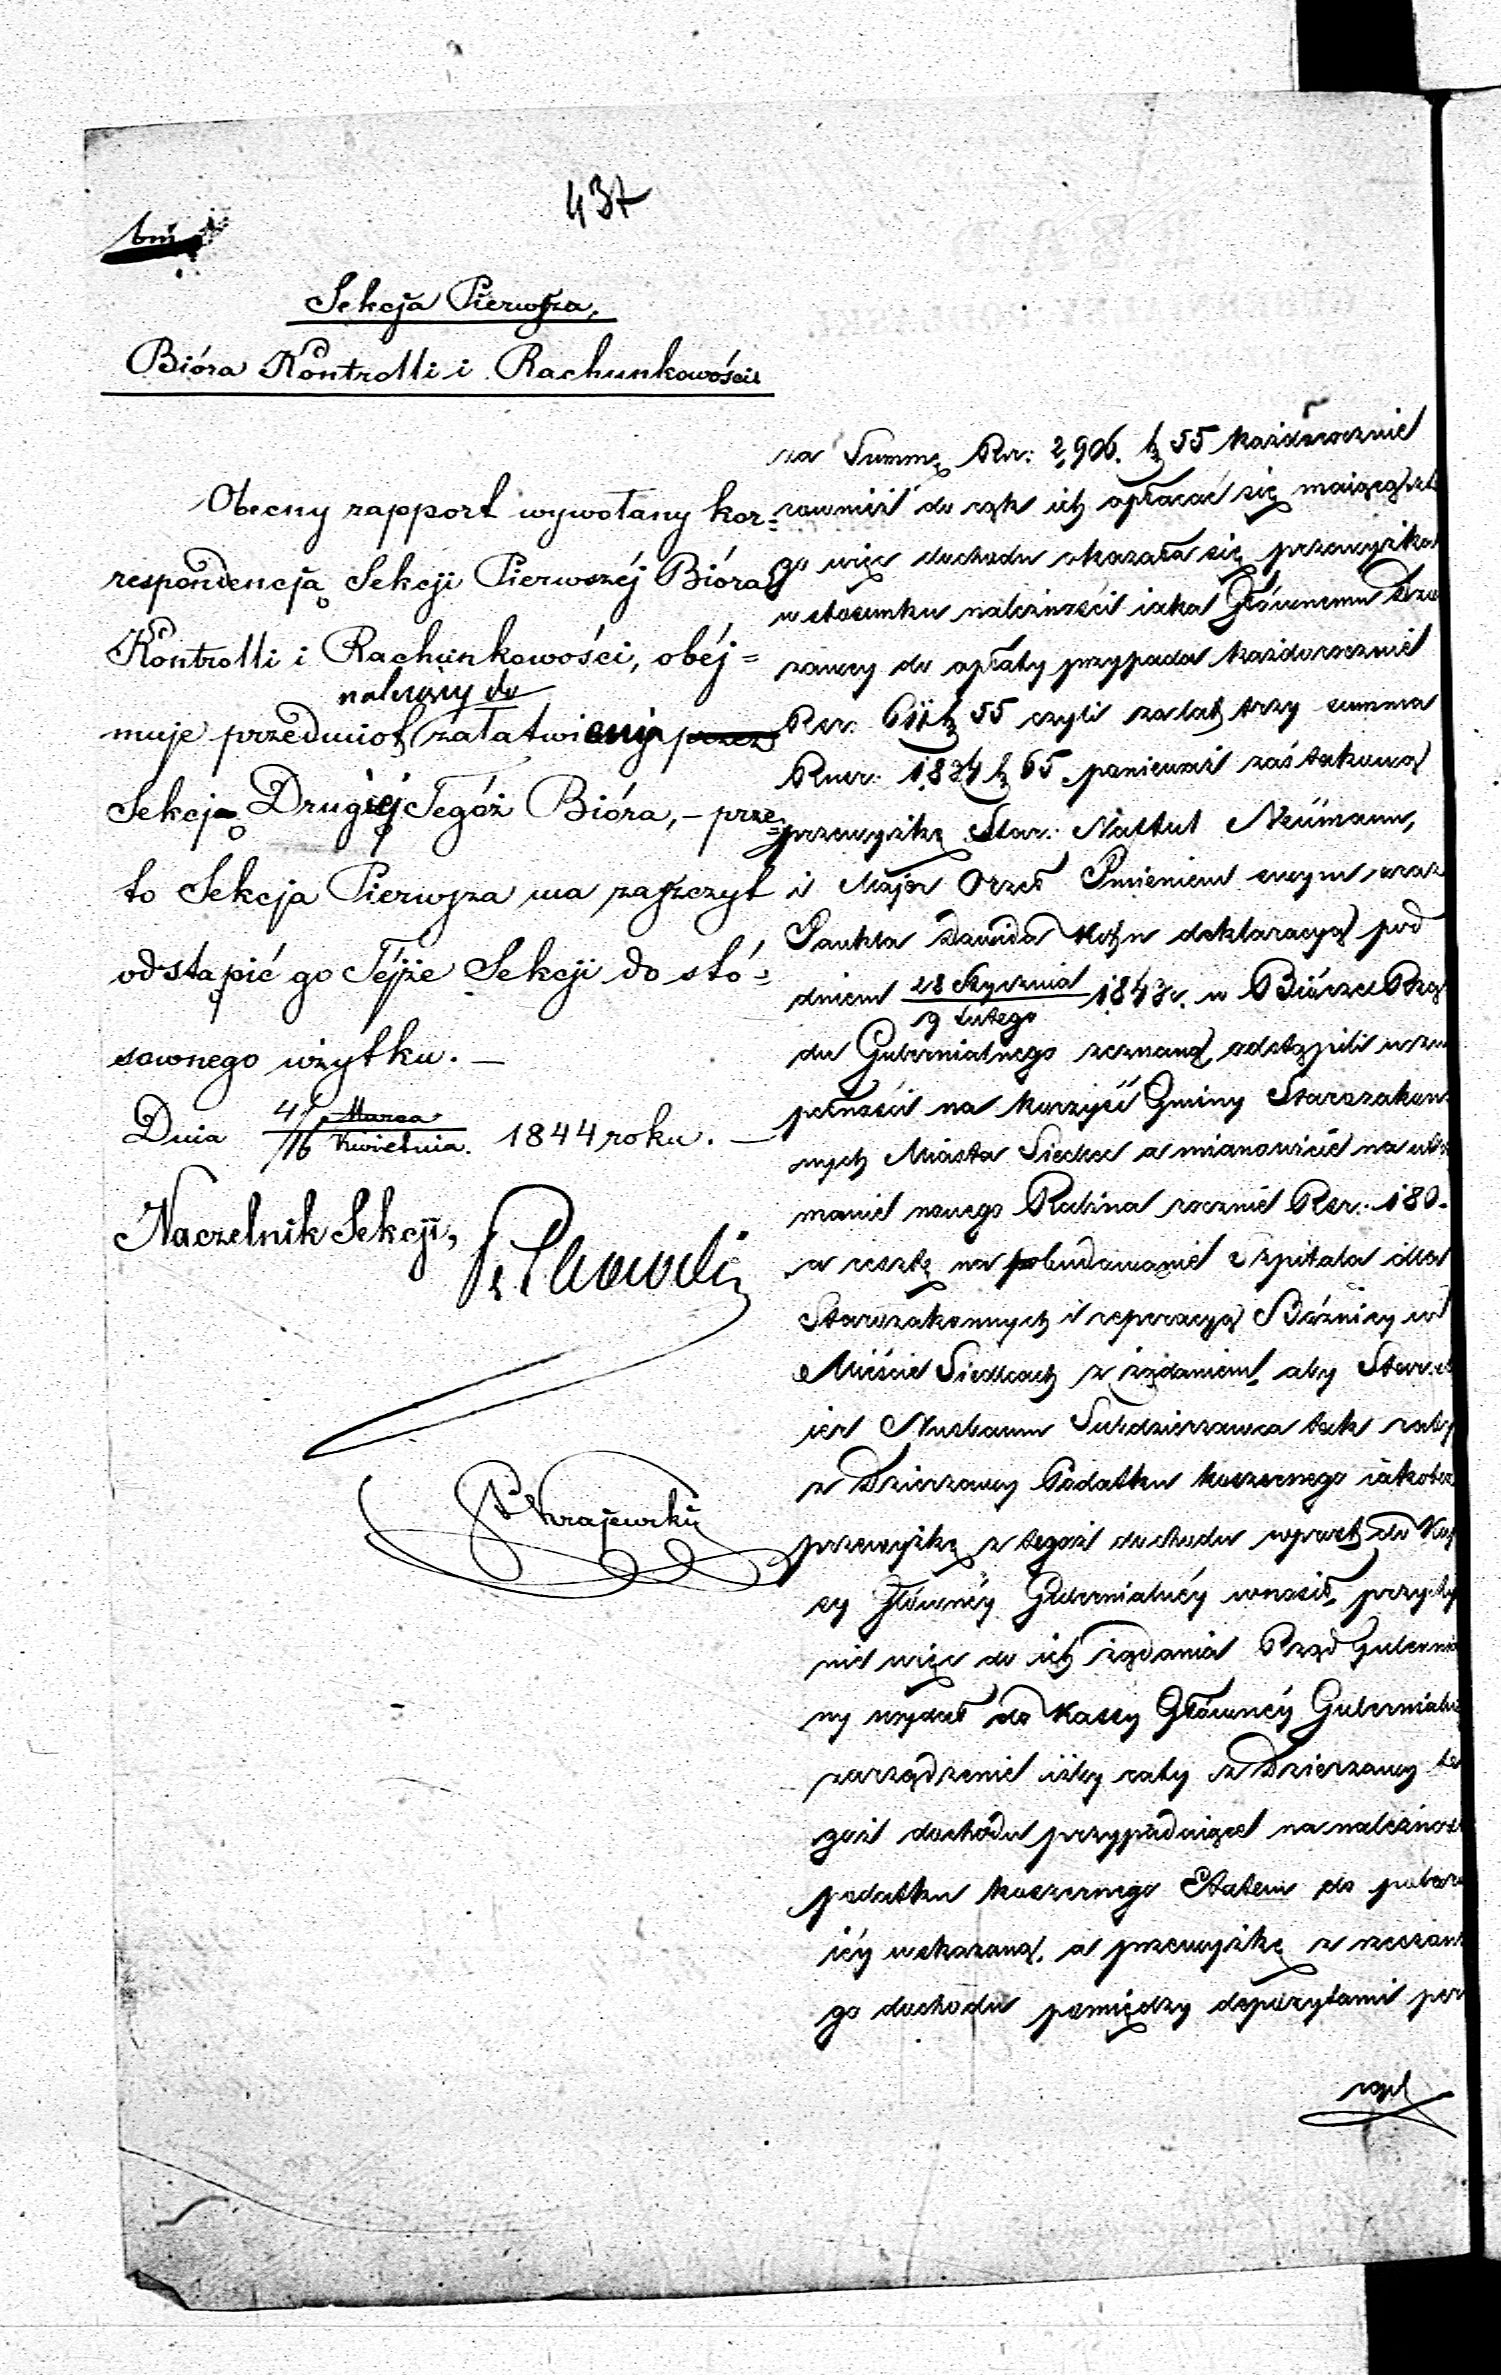 437
Sekcja Pierwsza,
Bióra Kontrolli i Rachunkowości
Obecny rapport wywołany kor=
respondencją Sekcji Pierwszéj Bióra
Kontrolli i Rachunkowości, obéj=
należący do
muje przedmiot załatwienia przez
Sekcja Drugiéj Tegóż Bióra, – prze=
to Sekcja Pierwsza ma zaszczyt
odstąpić go Téjże Sekcji do stó=
sownego użytku. –
Dnia 4/16 Marca Kwietnia. 1844 roku. –
Naczelnik Sekcji,
Krajewski
za Summę Rsr: 2,906. k 55 każdorocznie
rownież do rąk ich opłacać się maiącą, z te
go więc dochodu okazała się przewyżka
w stosunku należności iaka Głównemu Dzier
zawcy do opłaty przypada każdorocznie
Rsr. 611 k 55 czyli za lat trzy summa
Rusr. 1,834 k 65. ponieważ zaś takową
przewyżkę Star: Nattul Neümann,
i Major Orzeł Imieniem swym oraz
Pankta Dawida Kohn deklaracyą pod
dniem 28 Stycznia / 9 Lutego 1843 r. w Biórze Rzą
du Gubernialnego zeznaną odstąpili w zu
pełności na korzyść Gminy Starozakon
nych Miasta Siedlec a mianowicie na utrzy
manie nowego Rabina rocznie Rsr: 180.
a resztę na pobudowanie Szpitala dla
Starozakonnych i reperacyą Bóżnicy w
Mieście Siedlcach z żądaniem, aby Star.
Nusbaum Subdzierzawca tak raty
z Dzierzawy Podatku koszernego iakoteż
przewyżkę z tegoż dochodu wprost do Kas
sy Głównéy Gubernialnéy wnosił, przychyl
nie więc do ich żądania Rząd Gubernial
ny wydał do Kassy Głównéy Gubernialnéy
zarządzenie iżby raty z Dzierzawy te
goż dochodu przypadaiące na należność
podatku koszernego Etatem do pobora
iéy wskazaną, a przewyżkę z rzeczone
go dochodu pomiędzy depozytami per